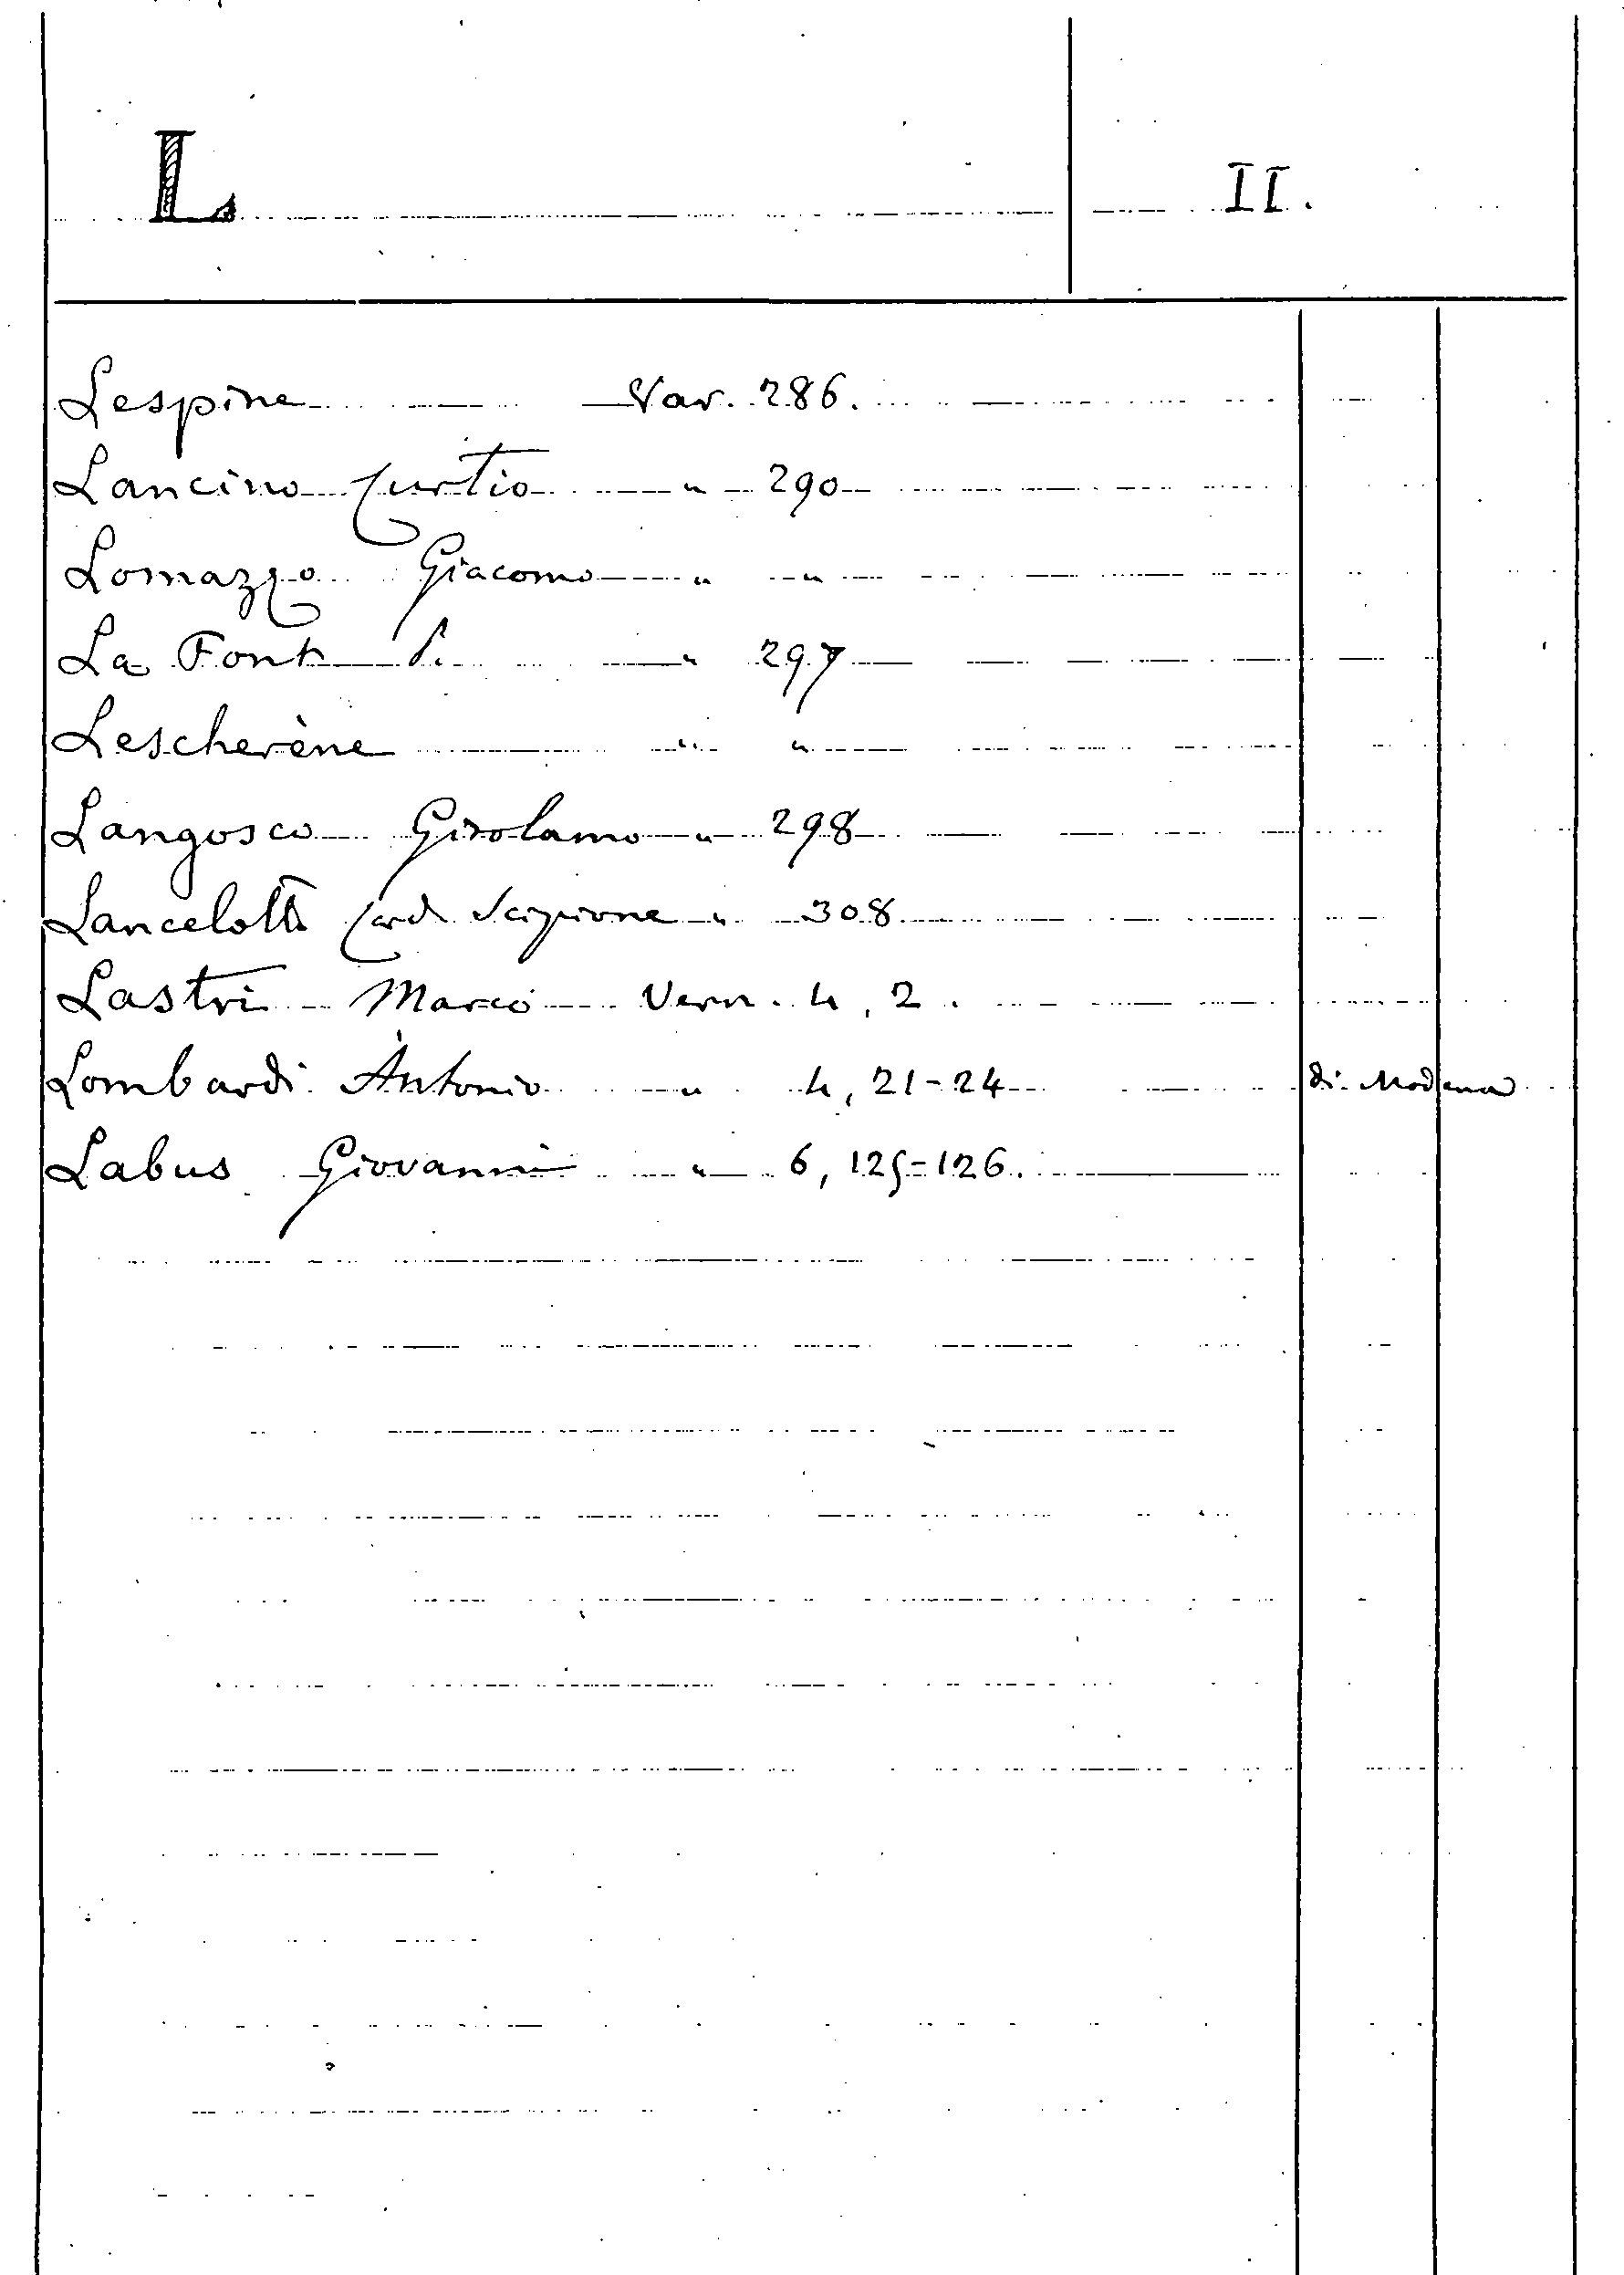 L II.
Lespine Var. 286.
Lancino Curtio " 290
Lomazzo Giacomo " "
La Font " 297
Lescherène " "
Langosco Girolamo " 298
Lancelotti Card Scipione " 308
Lastri Marco Vern. 4, 2.
Lombardi Antonio " 4, 21-24 di Modena
Labus Giovanni " 6, 125-126.